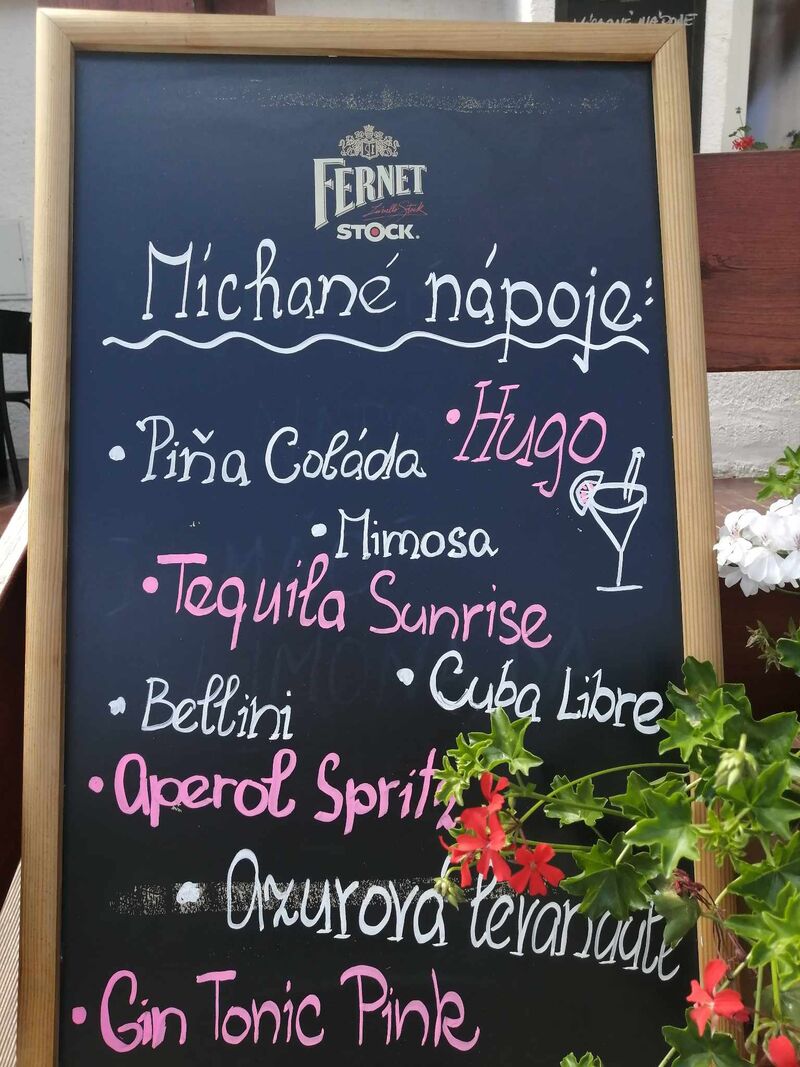 MÍCHANÉ NÁPOJE
FERNET
STOCK.
Míchané nápoje:
• Piňa Coláda
• Hugo
• Mimosa
• Tequila Sunrise
• Bellini
• Cuba Libre
• Aperol Spritz
• Azurová
• Gin Tonic Pink